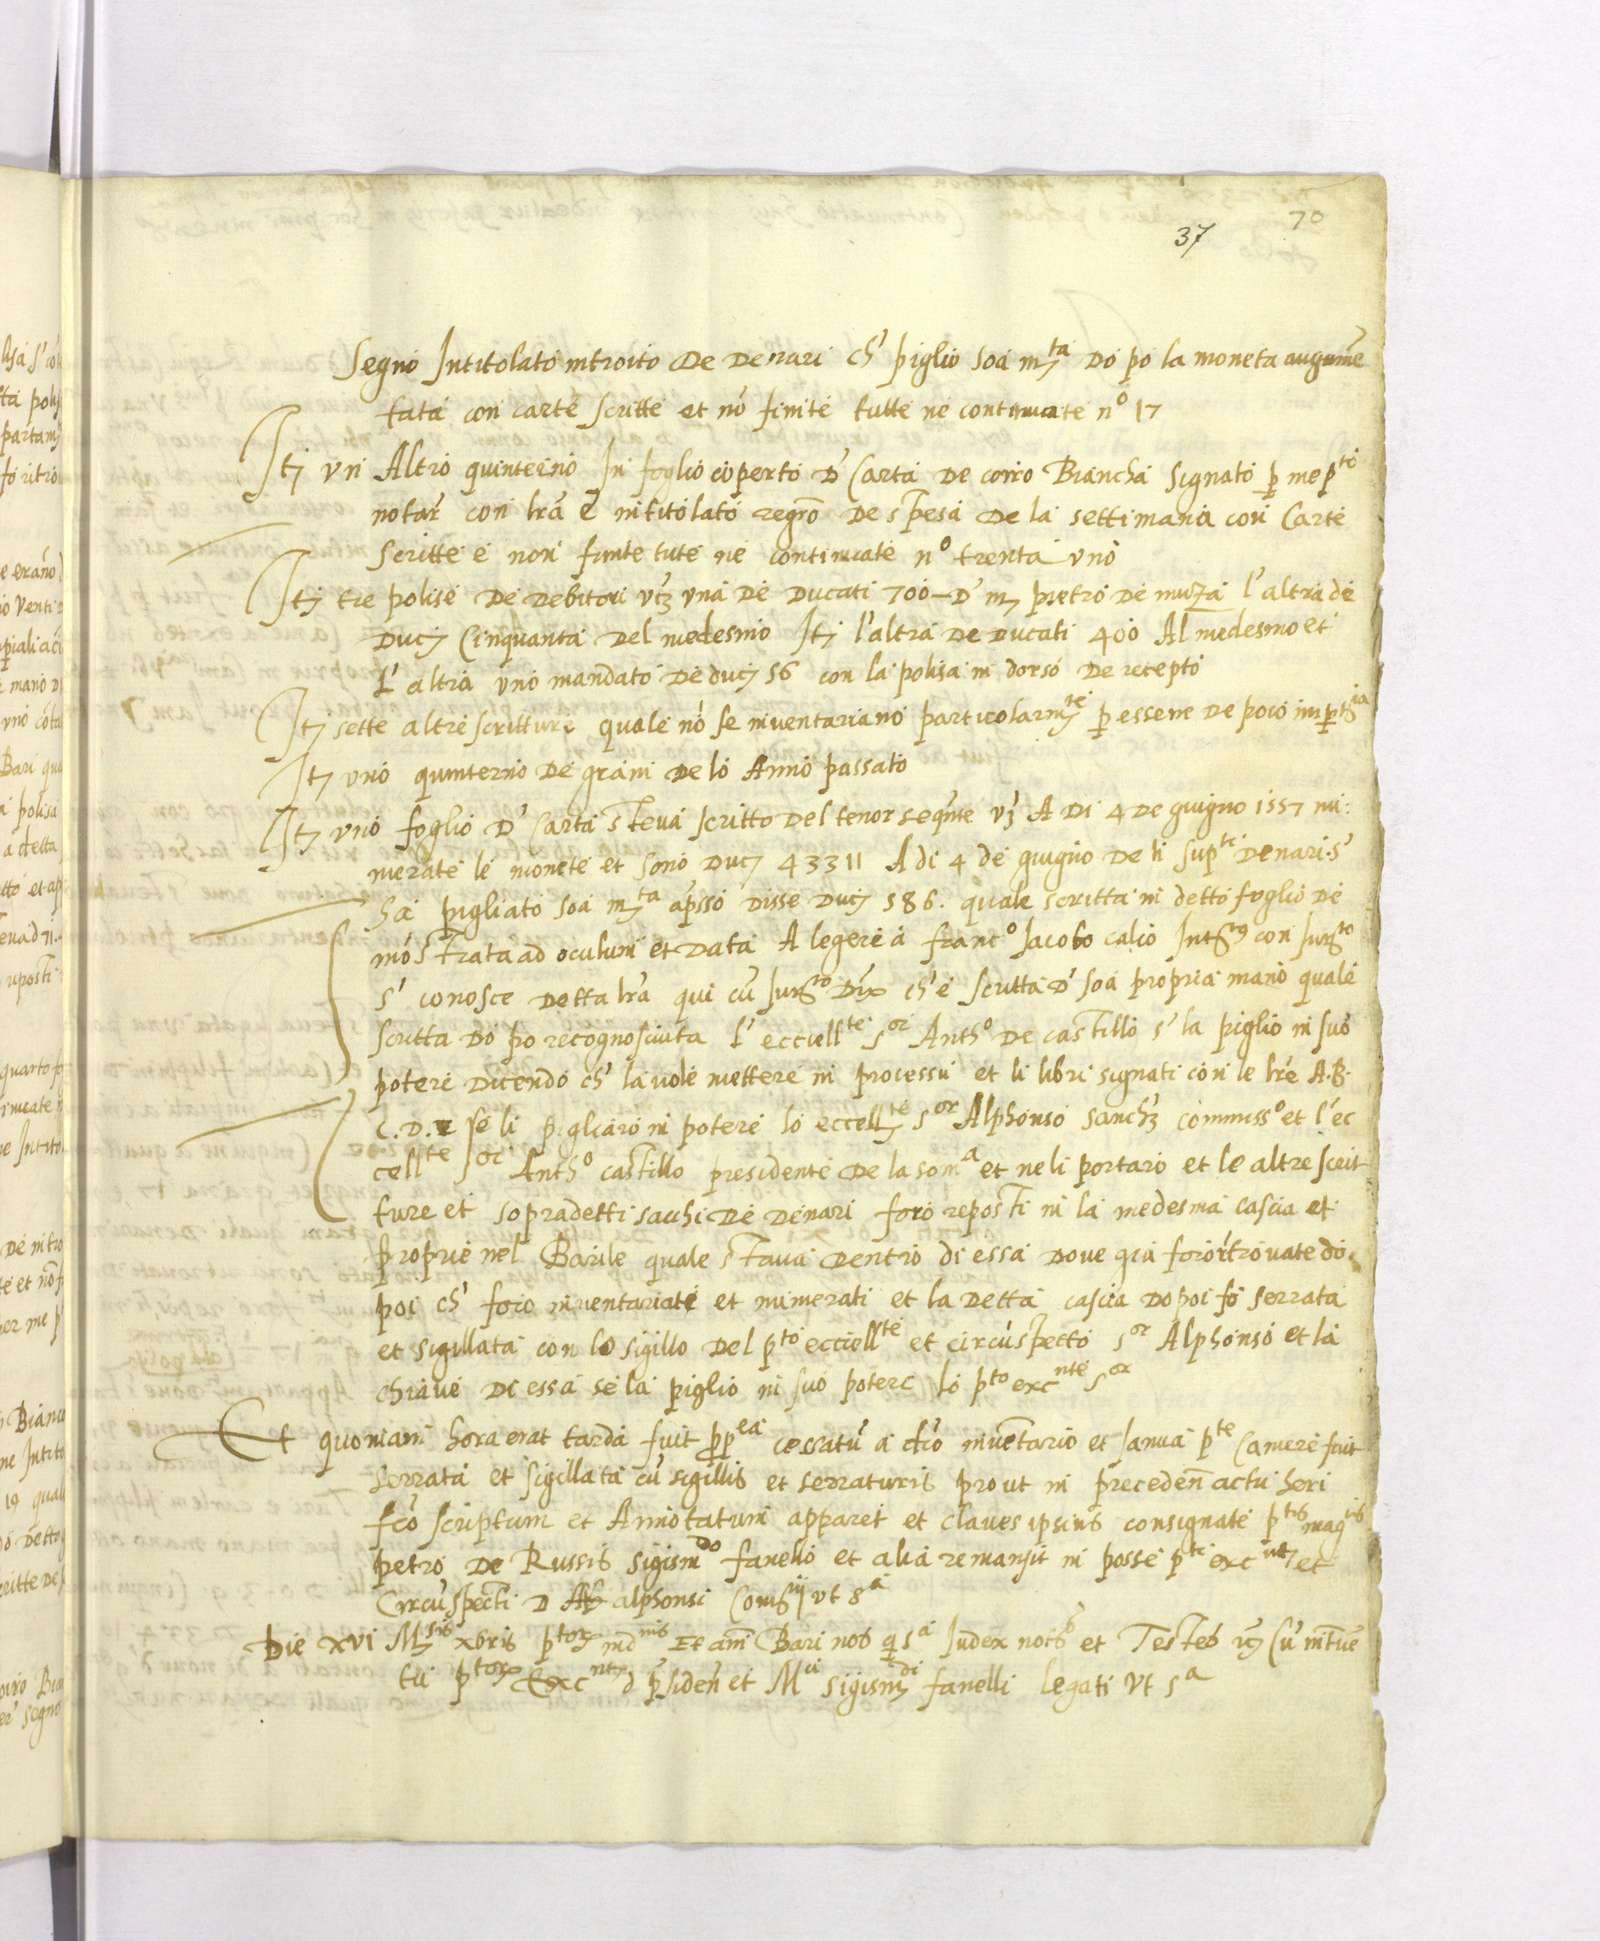 70
37
Segno Intitolato introito De Denari ch' piglio soa m.tà Do po la moneta augume
tata con carte scritte et nō finite tutte ne continuate n.o 17
Itȝ un Altro quinterno In foglio coperto D' Carta De coiro Biancha signato p me p.to
notar' con l'rā E intitolato regr̄o De spesa De la settimana con Carte
scritte e non finite tute ne continuate n.o trenta uno
Itȝ tre polise De Debitori vȝ una De Ducati 700 – D' m pietro De muzza l'altra de
Ducȝ Cinquanta Del medesmo Itȝ l'altra De Ducati 400 Al medesmo et
L'altra uno mandato De ducȝ 56 con la polisa in dorso De recepto
Itȝ sette altre scritture quale nō se inventariano particolarm.te p essere De poco import.ia
Itȝ uno quinterno De grani De lo Anno passato
Itȝ uno foglio D' Carta steva scritto Del tenor seqn̄te vȝ A Di 4 De guigno 1557 nu:
merate le monete et sono Ducȝ 43311 A di 4 de guigno De li sup.ti Denari s'
ha pigliato soa m.tà ap̄sso Disse Ducȝ 586. quale scritta in detto foglio De
mōstrata ad oculum et Data A legere a franc.o Jacobo calio con Jur.to
s' conosce Detta l'rā qui cū Jur.to Dix ch' e scritta D' soa propria mano quale
scritta Do po recognosciuta l'ecciell.te s.or Anth.o De castillo s' la piglio in suo
potere Dicendo ch' la vole mettere in processu et li libri signati con le l're A.B.
C.D.E se li pigliaro in potere lo eccell.te s.or Alphonso sanchȝ commiss.o et l'ec
cell.te s.or Anth.o castillo presidente De la som.a et ne li portaro et le altre scrit
ture et sopradetti sacchi De Denari foro reposti in la medesma cascia et
proprie nel Barile quale stava Dentro di essa Dove già foro ritrovate do
poi ch' foro inventariate et numerati et la Detta cascia Dopoi fo serrata
et sigillata con lo sigillo Del p.to ecciell.te et circūspetto s.or Alphonso et la
chiave Di essa se la piglio in suo potere lo p.to exc.nte s.or
Et quoniam hora erat tarda fuit p̄p.ea cessatū a d'cō inventario et Janua p.te Camere fuit
serrata et sigillata cū sigillis et serraturis prout in preceden̄ actu heri
f'cō scriptum et Annotatum apparet et claves ipsius consignate p.tis mag.cis
petro De Russis sigism.do fanello et alia remansit in posse p.ti exc.ntis et
Circūspecti D alphonsi Coms.rij ut s.a
Die xvi M.sis xbris p.te ind.nis Et am̄ Bari nos q s.a Judex not.s et Testes cū intuē
tu p.tor Exc.nt d p̄siden̄ et M.ci sigism.di fanelli legati ut s.a